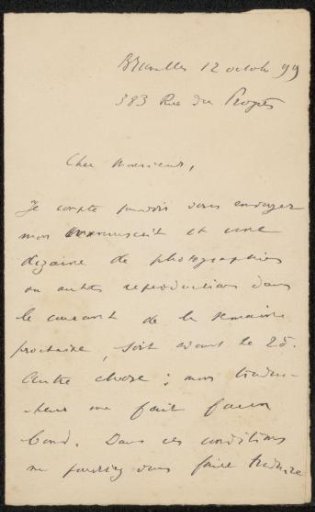 Bruxelles 12 octob 99
383 Rue du Progrès
Cher Monsieur,
Je compte pouvoir vous envoyer
mon manuscrit et une
dizaine de photographies
ou autres reproductions dans
le courant de la semaine
prochaine, soit avant le 25.
Autre chose : mon traduc-
teur me fait faux
bond. Dans ces conditions
ne pourriez vous faire traduire